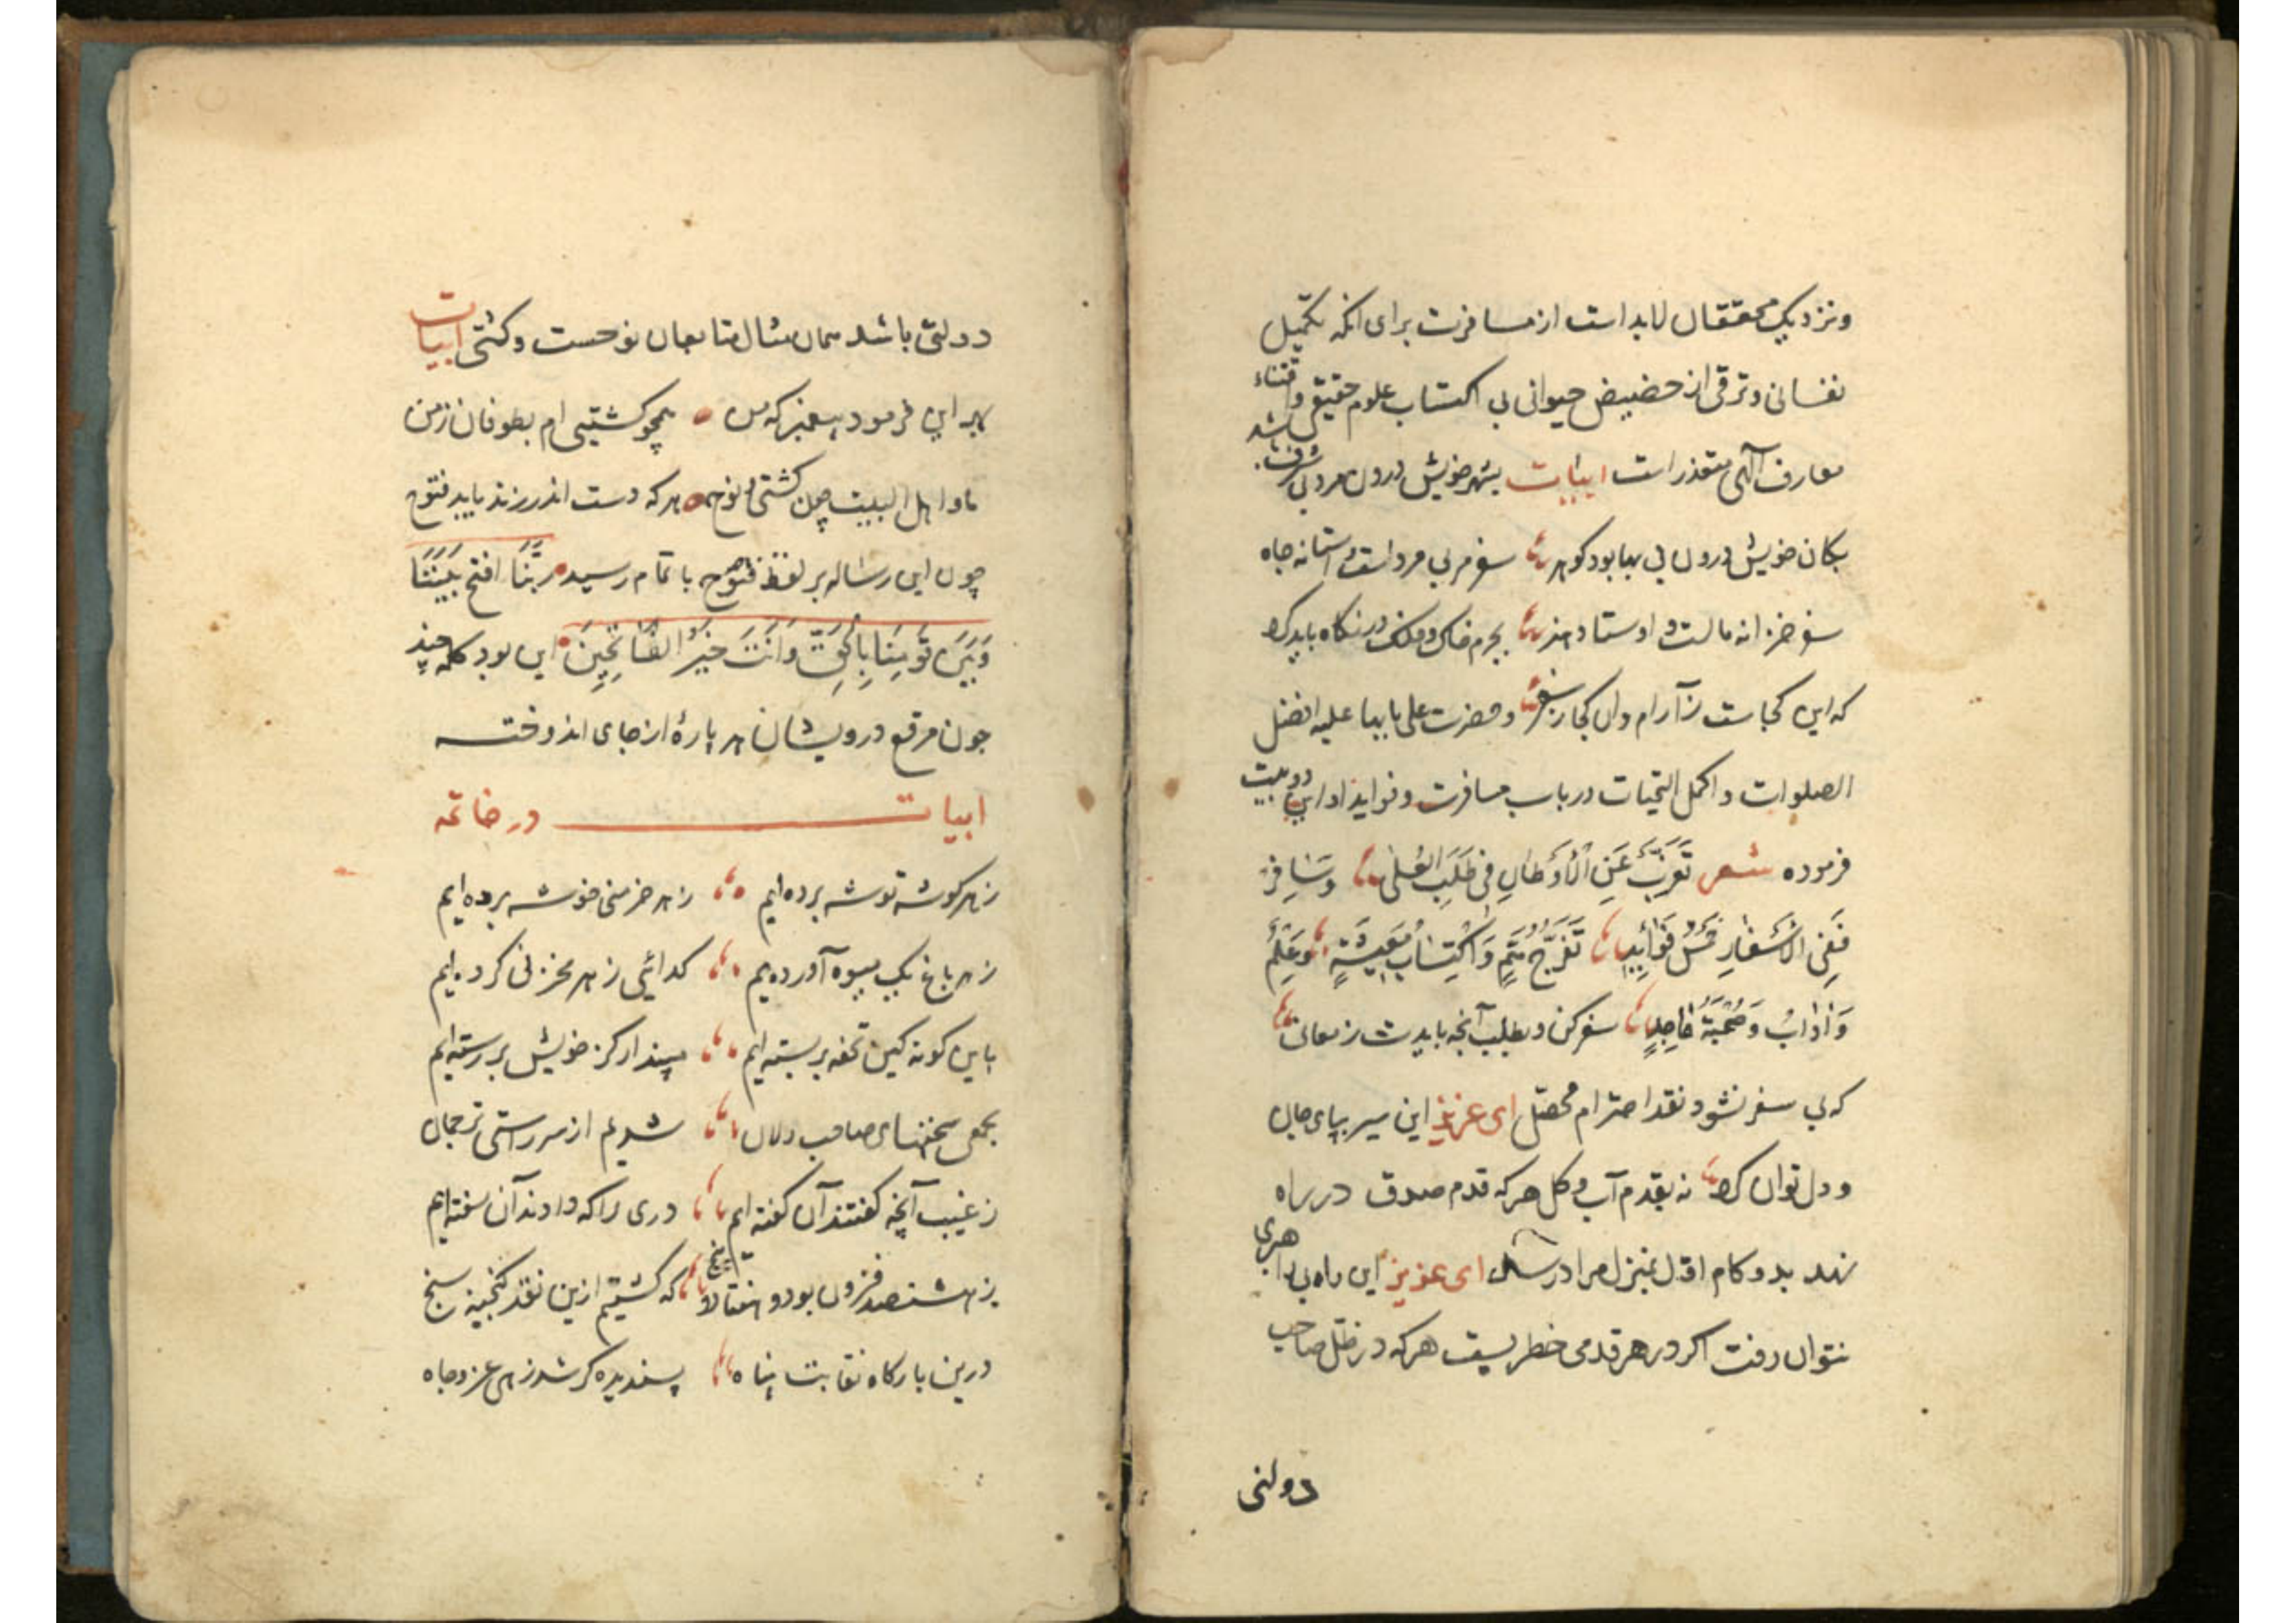 ونزدیک محققان لابد است از مسافرت برای انکه تکمیل
نفسانی وترقی از حضیض حیوانی بی اکتساب علوم حقیقی واقتناء
معارف الهی متعذر است ابیات بشهر خویش درون مرد بی شرف باشد
بکان خویش درون بی بها بود کوهر سفر مربی مرد است و آستانه جاه
سفر خزانه مالست و اوستاد هنر بجرم خاک و فلک در نکاه باید کرد
که این کجاست ز آرام وان کجا ز سفر و حضرت علی بابها علیه افضل
الصلوات واکمل التحیات در باب مسافرت وفواید او این دو بیت
فرموده شعر تَغَرَّبْ عَنِ الْاَوْطَانِ فِی طَلَبِ الْعُلیٰ وَسَافِرْ
فَفِی الْاَسْفَارِ خَمْسُ فَوَائِدِ تَفَرُّجُ هَمٍّ وَاکْتِسَابُ مَعِیشَةٍ وَعِلْمٌ
وَاٰدَابٌ وَصُحْبَةُ مَاجِدٍ سفر کن وبطلب آنچه بایدت ز معانی
که بی سفر نشود نقد احترام محصّل ای عزیز این سیر بپای جان
ودل توان کرد نه بقدم آب وکل هر که قدم صدق در راه
نهد بدو کام اوّل بمنزل مراد رسد ای عزیز این راه بی راهبری
نتوان رفت اکر در هر قدمی خطریست هر که در ظلّ صاحب
دولتی
دولتی باشد همان مثال متابعان نوحست وکشتی ابیات
بهر این فرمود پیغمبر که من همچو کشتیی ام بطوفان زمن
ما و اهل البیت چون کشتی نوح هر که دست اندر زند یابد فتوح
چون این رساله بر لفظ فتوح باتمام رسید رَبَّنَا افتح بَیْنَنَا
وَبَیْنَ قَوْمِنَا بِالْحَقِّ وَاَنْتَ خَیْرُ الْفَاتِحِینَ این بود کلمه چند
چون مرقع درویشان هر پارهٔ از جای اندوخته
ابیات در خاتمه
ز هر کوشه توشه برده ایم ز هر خرمنی خوشه برده ایم
ز هر باغ یک میوه آورده ایم کدائی ز هر مخزنی کرده ایم
باین کونه کین تحفه بربسته ایم مپندار کز خویش بر رسته ایم
بجمع سخنهای صاحب دلان شدیم از سر راستی ترجمان
ز غیب آنچه کفتند آن کفته ایم دری را که دادند آن سفته ایم
ز هشتصد فزون بود و هفتاد و پنج که کشتیم ازین نقد کنجینه سنج
درین بارکاه نقابت پناه پسندیده کر شد زهی عز وجاه